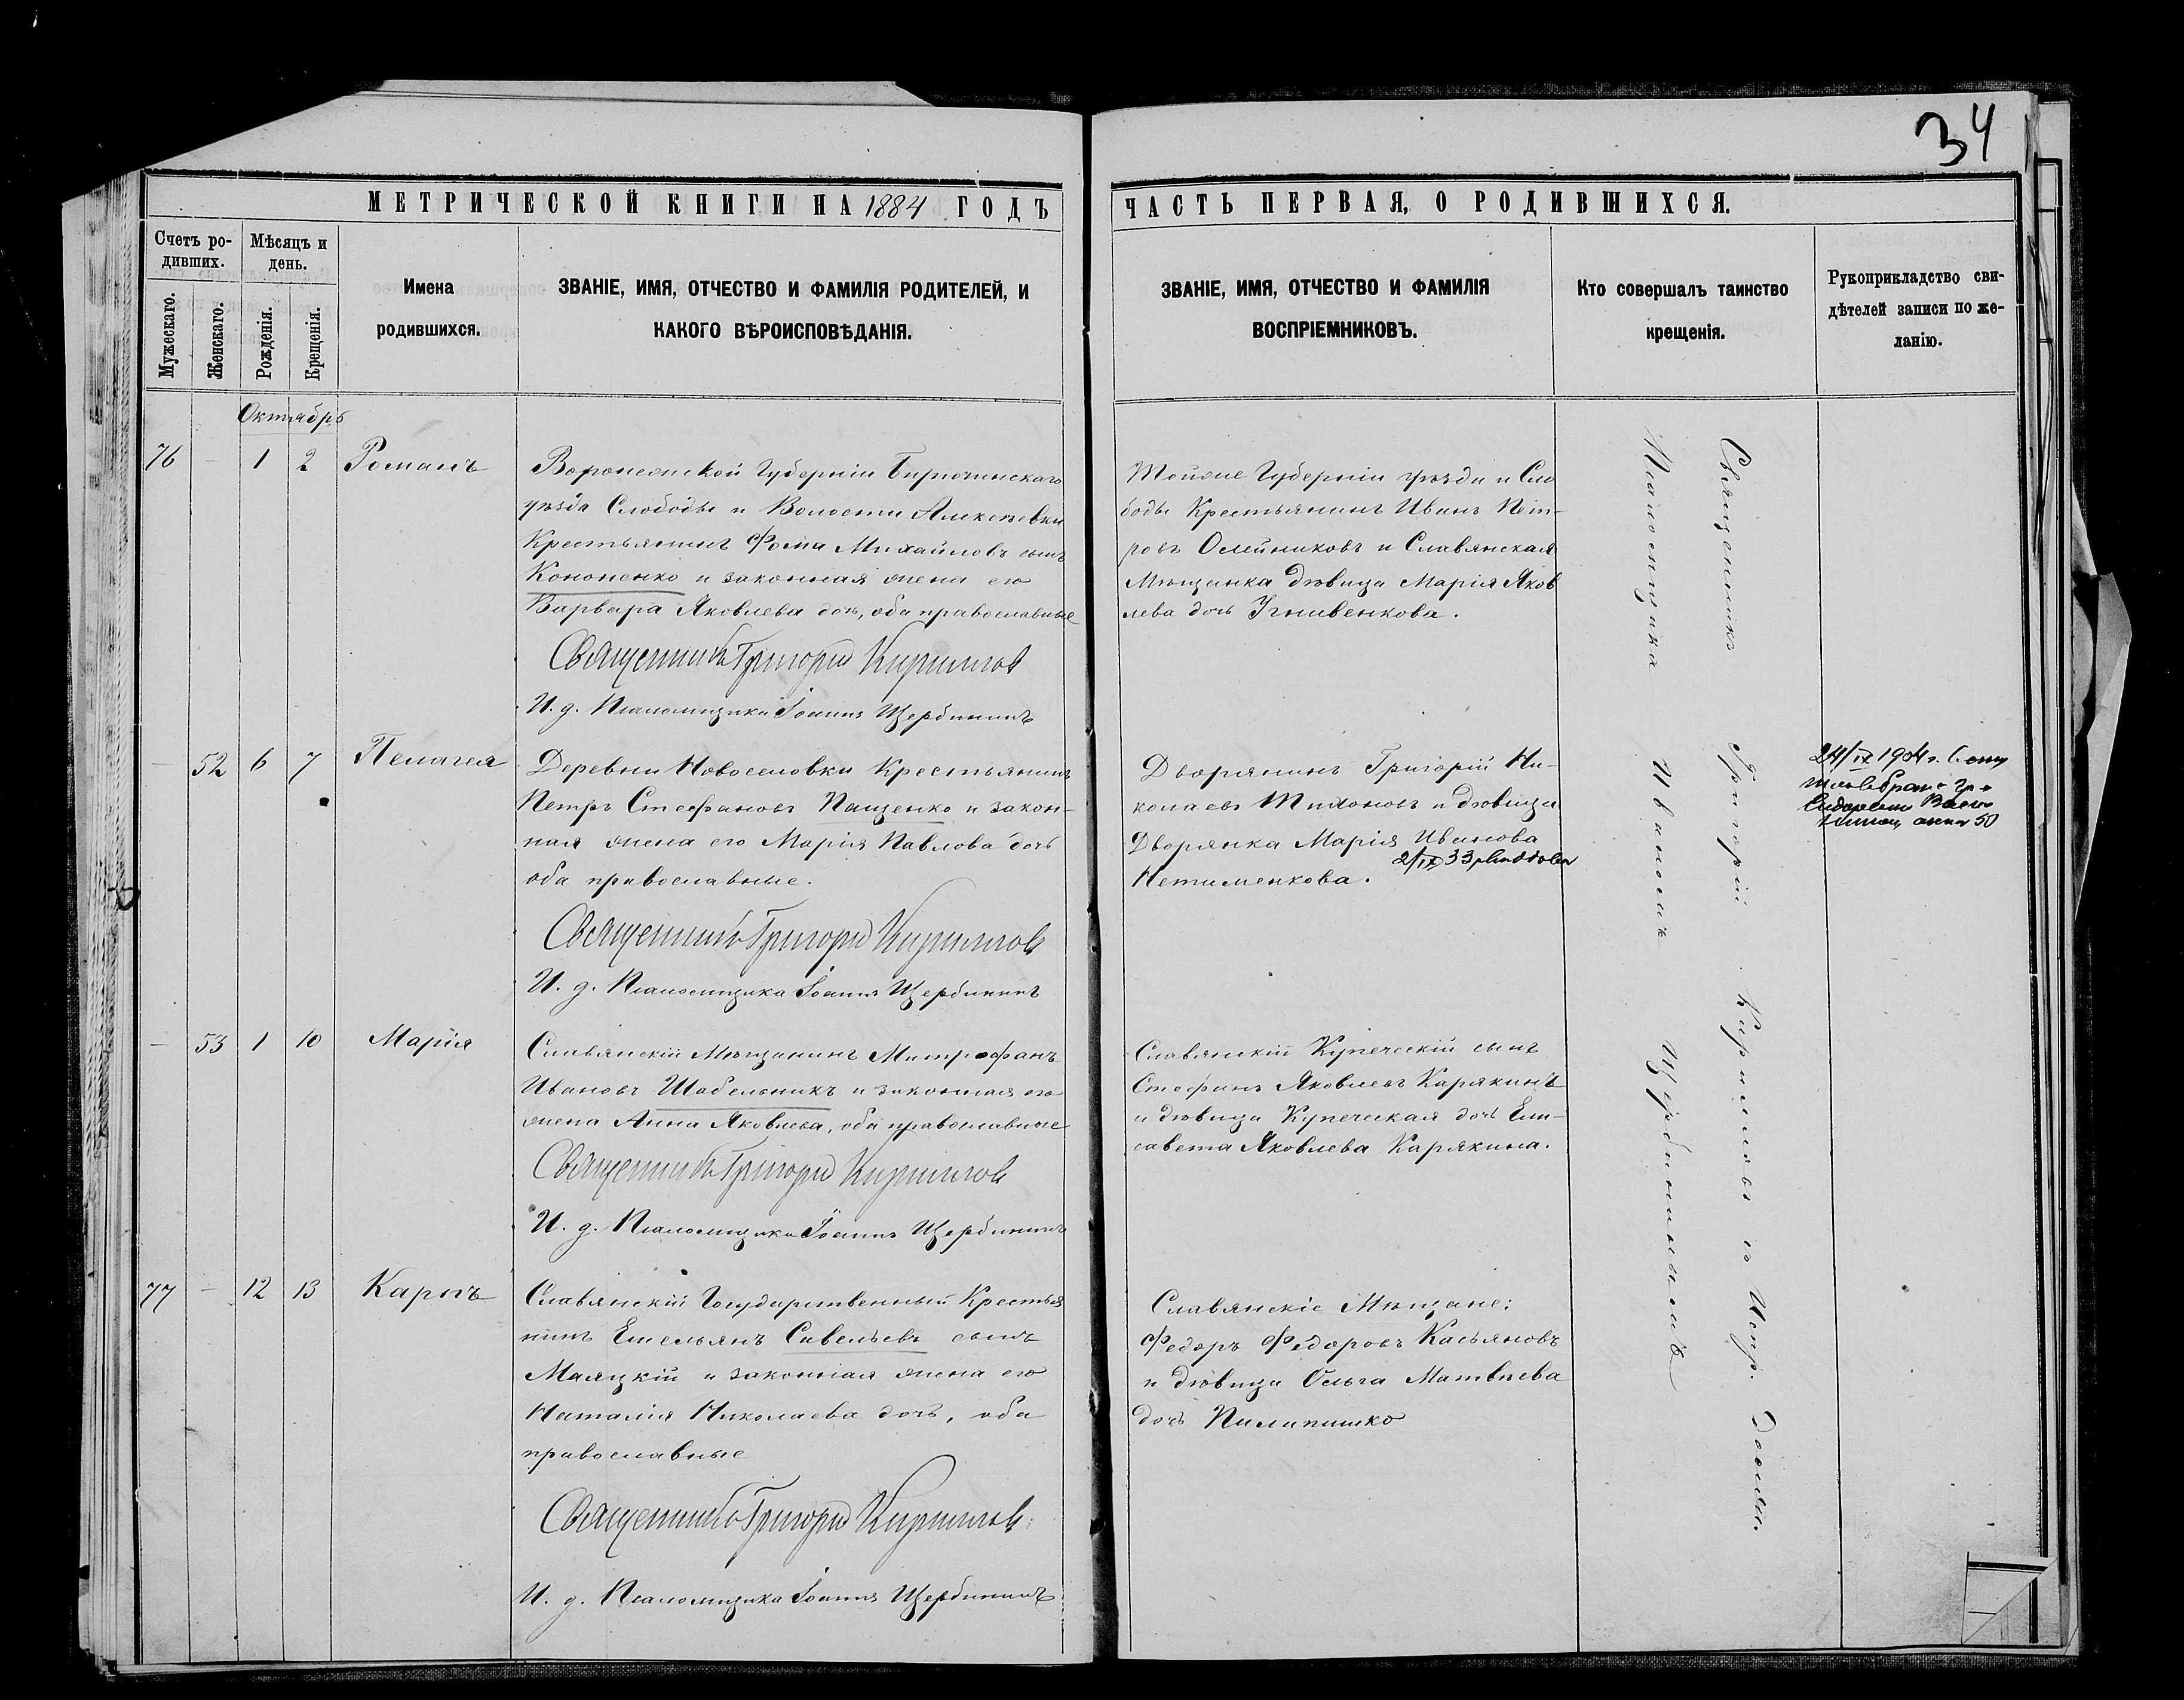 34
МЕТРИЧЕСКОЙ КНИГИ НА 1884 ГОДЪ
ЧАСТЬ ПЕРВАЯ, О РОДИВШИХСЯ.
Счетъ ро-
дивших.
Мужескаго.
Женскаго.
Мѣсяцъ и
день.
Рожденія.
Крещенія.
Имена
родившихся.
ЗВАНІЕ, ИМЯ, ОТЧЕСТВО И ФАМИЛІЯ РОДИТЕЛЕЙ, И
КАКОГО ВѢРОИСПОВѢДАНІЯ.
ЗВАНІЕ, ИМЯ, ОТЧЕСТВО И ФАМИЛІЯ
ВОСПРІЕМНИКОВЪ.
Кто совершалъ таинство
крещенія.
Рукоприкладство сви-
дѣтелей записи по же-
ланію.
Октябрь
76 - 1 2 Романъ
Воронежской Губерніи Бирюченскаго
уѣзда Слободы и Волости Алексѣевки
Крестьянинъ Фома Михайловъ сынъ
Кононенко и законная жена его
Варвара Яковлева доч, оба православные
Священникъ Григорій Кириллов
И. д. Псаломщика Іоаннъ Щербининъ
Тойже Губерніи уѣзда и Сло
боды Крестьянинъ Иванъ Пет-
ровъ Олейниковъ и Славянская
Мѣщанка дѣвица Марія Яков
лева дочь Угнивенкова.
- 52 6 7 Пелагея
Деревни Новоселовки Крестьянинъ
Петръ Стефановъ Пащенко и закон-
ная жена его Марія Павлова дочь
оба православные.
Священникъ Григорій Кириллов
И. д. Псаломщика Іоаннъ Щербининъ
Дворянинъ Григорій Ни-
колаевъ Тихоновъ и дѣвица
Дворянка Марія Иванова
Нетименкова.
24/IX 1904 г.
- 53 1 10 Марія
Славянскій Мѣщанинъ Митрофанъ
Ивановъ Шабельникъ и законная его
жена Анна Яковлева, оба православные
Священникъ Григорій Кириллов
И. д. Псаломщика Іоаннъ Щербининъ
Славянскій Купеческій сынъ
Стефанъ Яковлевъ Карякинъ
и дѣвица Купеческая дочь Ели-
савета Яковлева Карякина.
77 - 12 13 Карпъ
Славянскій Государственный Крестья
нинъ Емельянъ Савельевъ сынъ
Маляцкій и законная жена его
Наталія Николаева дочь, оба
православные
Священникъ Григорій Кириллов.
И. д. Псаломщика Іоаннъ Щербининъ
Славянскіе Мѣщане:
Федоръ Федоровъ Касьяновъ
и дѣвица Ольга Матвѣева
дочь Пилипишко
Священникъ Григорій Кирилловъ и Испр. должн.
Псаломщика Иванъ Щербининъ